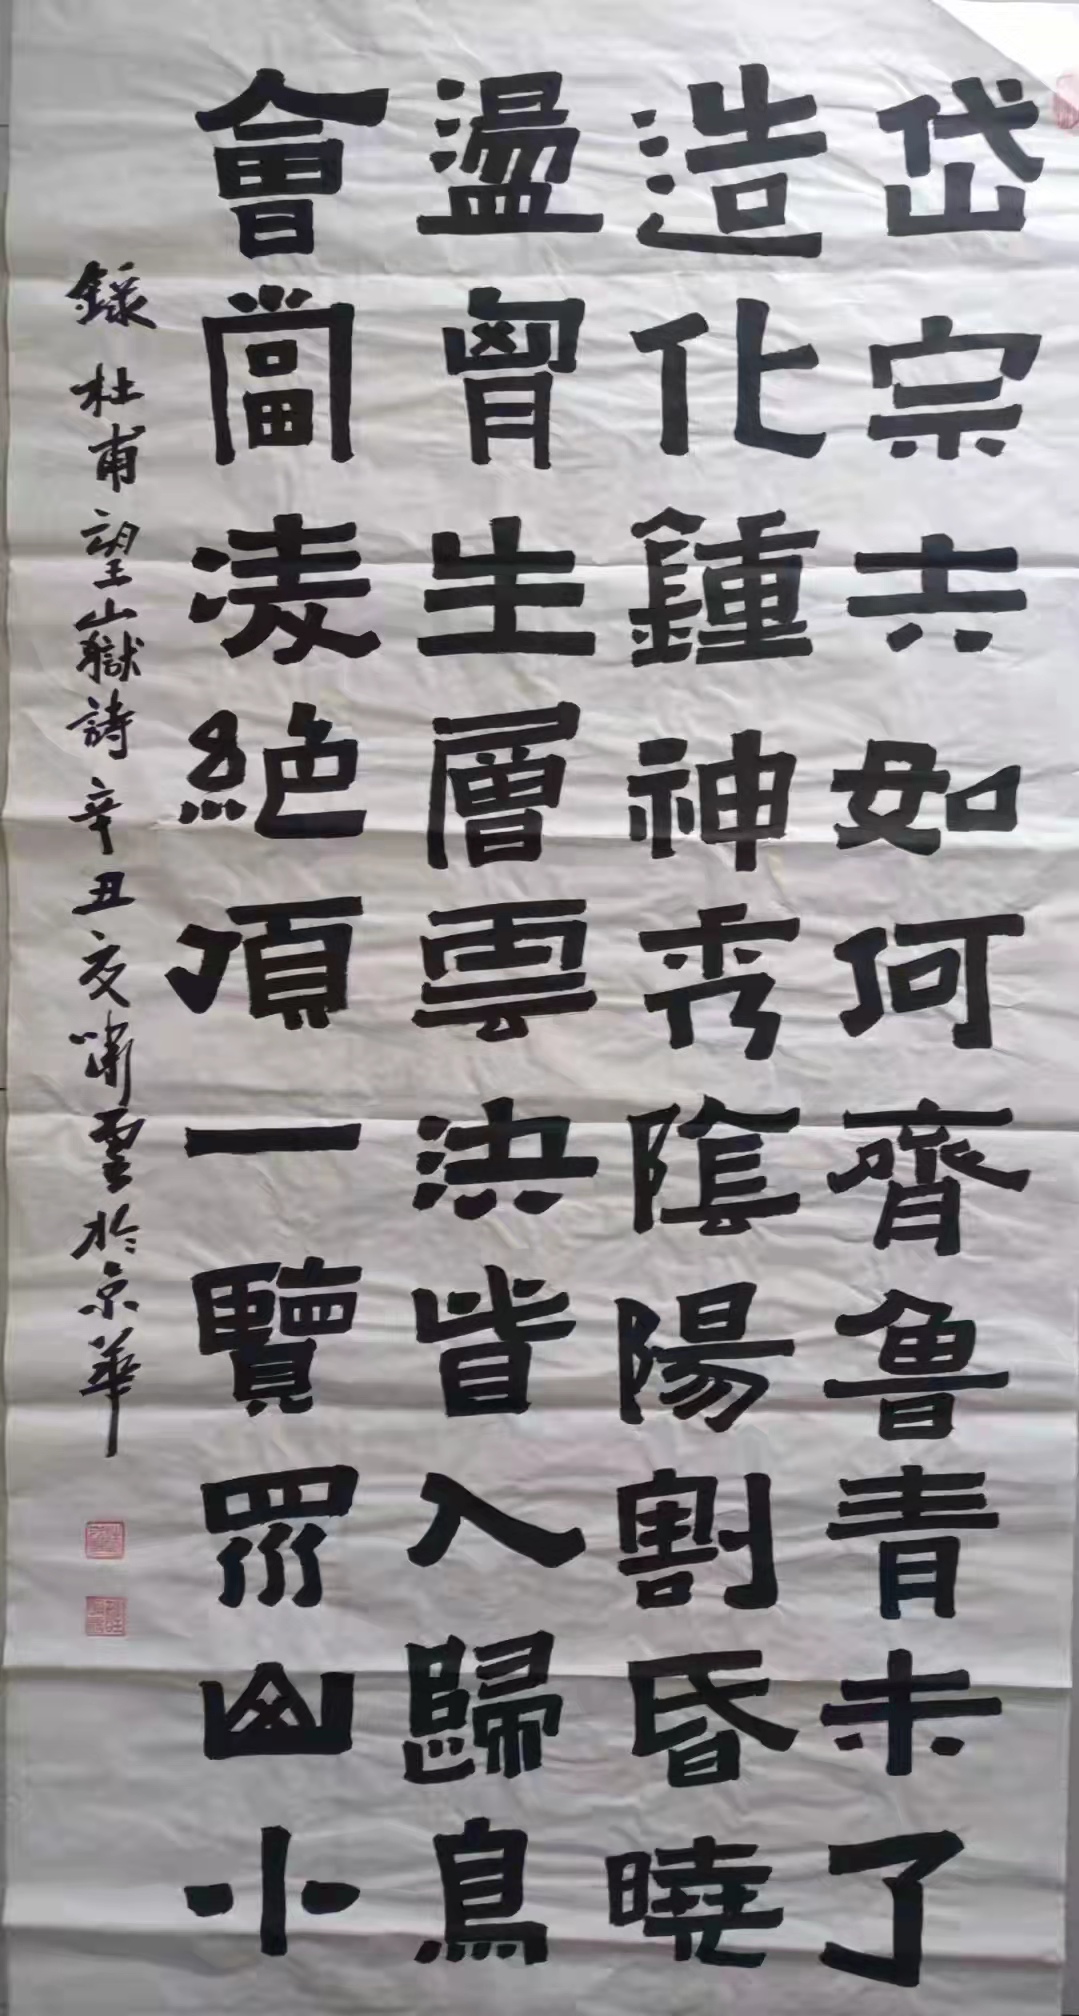 岱宗夫如何齊魯青未了
造化鍾神秀陰陽割昏曉
盪胷生層雲決眥入歸鳥
會當凌絕頂一覽眾山小
錄杜甫望山嶽詩辛丑夏嘯雲於京華